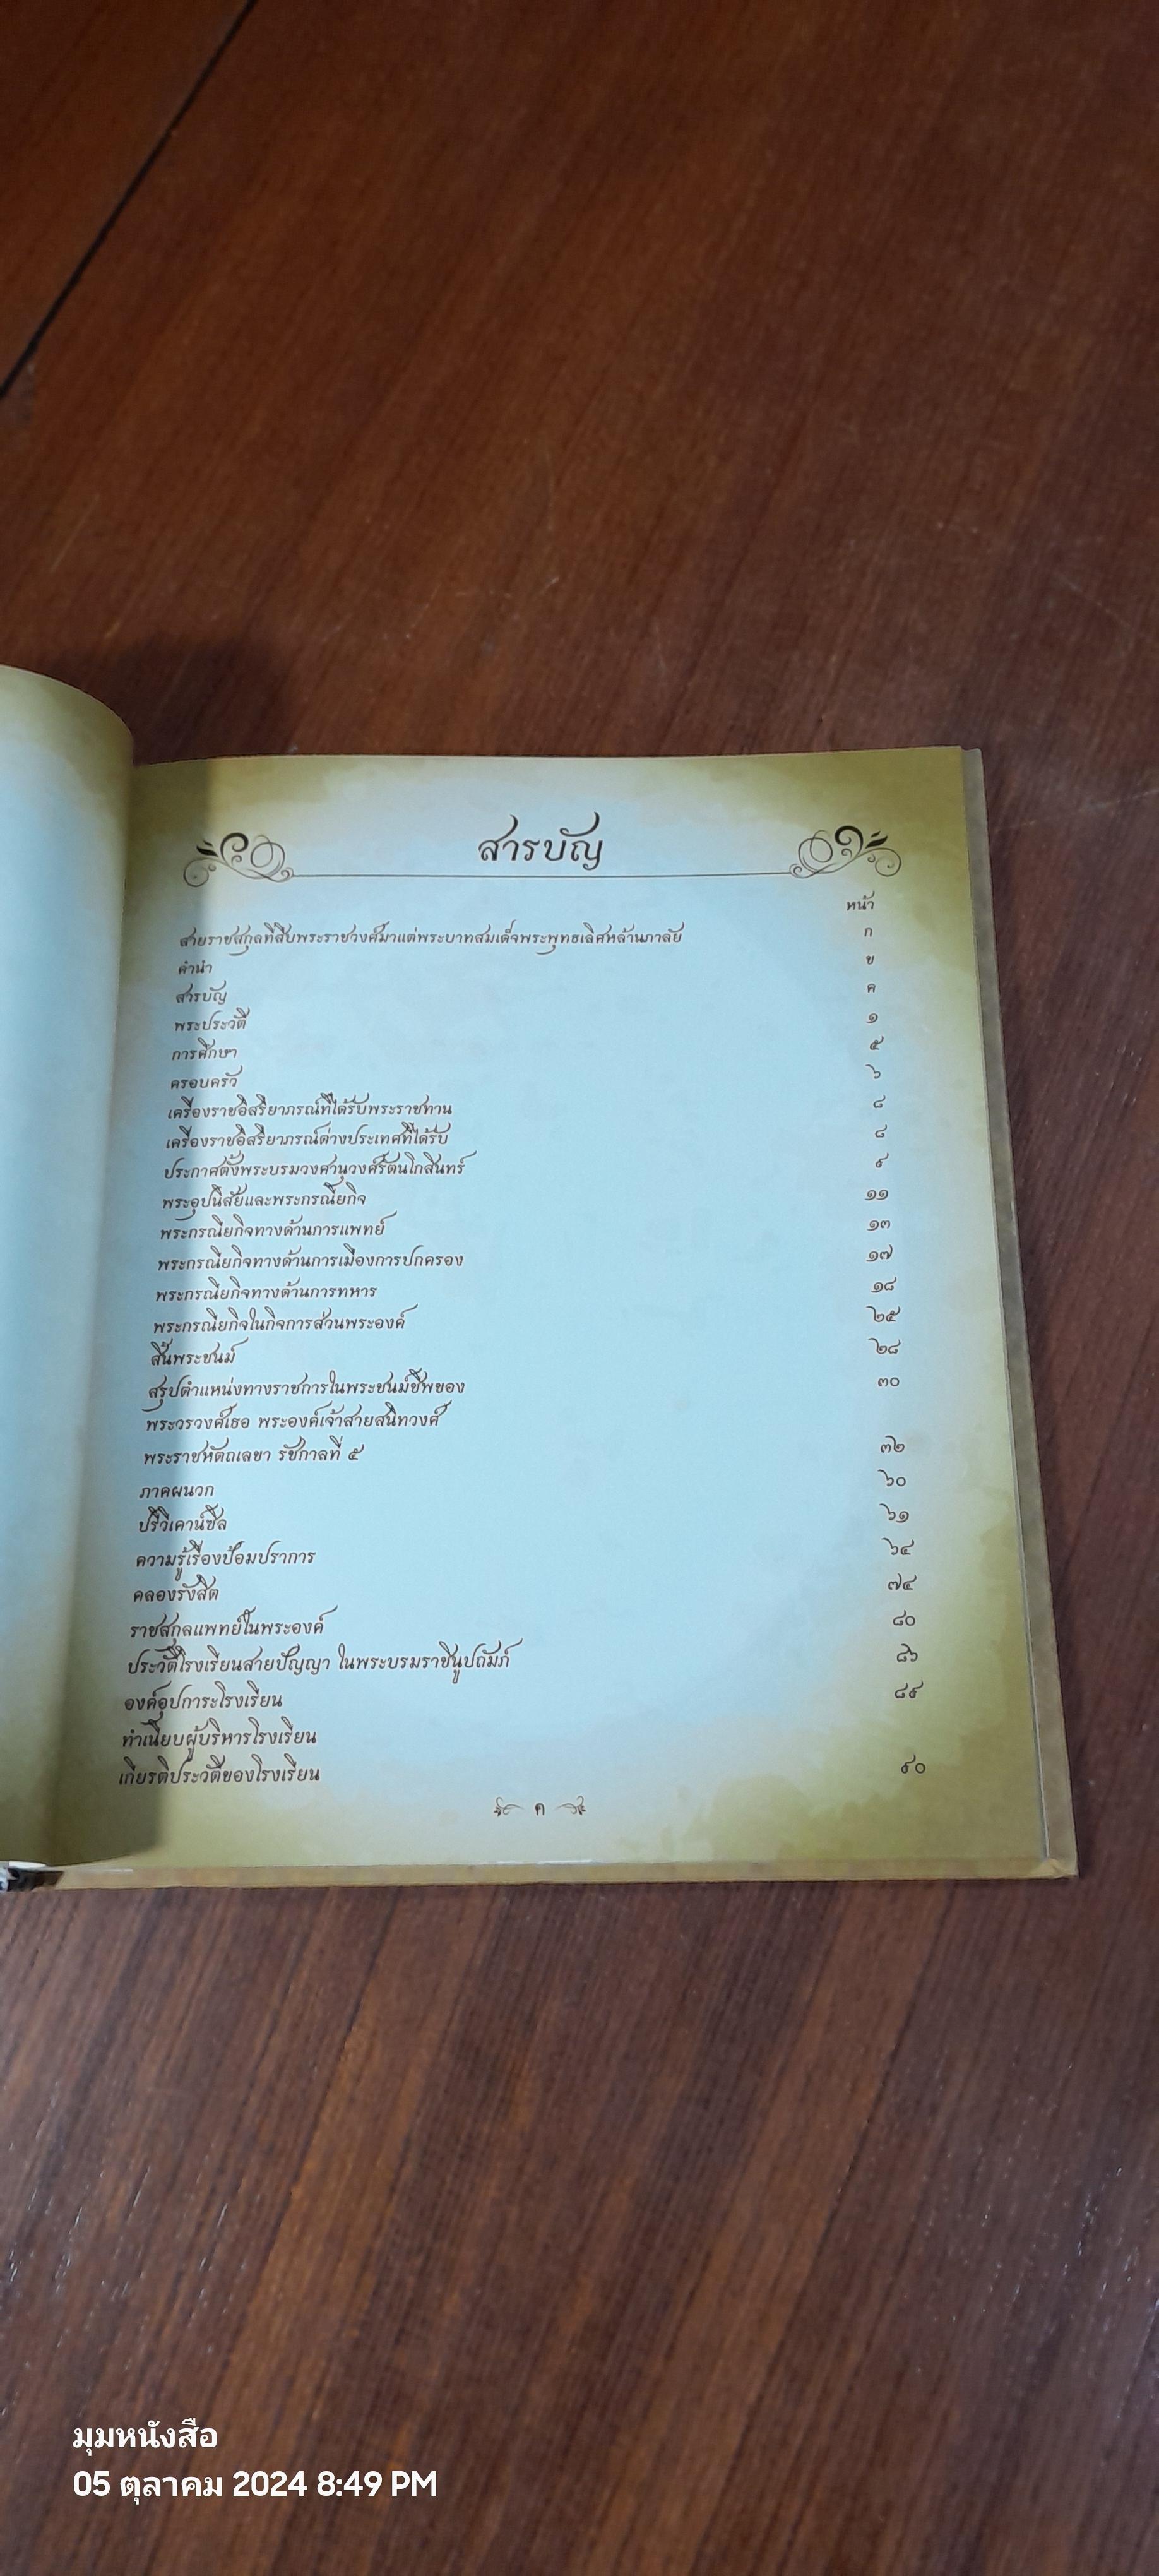 สารบัญ
หน้า
สายราชสกุลที่สืบพระราชวงศ์มาแต่พระบาทสมเด็จพระพุทธเลิศหล้านภาลัย ก
คำนำ ข
สารบัญ ค
พระประวัติ ๑
การศึกษา ๕
ครอบครัว ๖
เครื่องราชอิสริยาภรณ์ที่ได้รับพระราชทาน ๘
เครื่องราชอิสริยาภรณ์ต่างประเทศที่ได้รับ ๘
ประกาศตั้งพระบรมวงศานุวงศ์รัตนโกสินทร์ ๙
พระอุปนิสัยและพระกรณียกิจ ๑๑
พระกรณียกิจทางด้านการแพทย์ ๑๓
พระกรณียกิจทางด้านการเมืองการปกครอง ๑๗
พระกรณียกิจทางด้านการทหาร ๑๘
พระกรณียกิจในกิจการส่วนพระองค์ ๒๕
สิ้นพระชนม์ ๒๘
สรุปตำแหน่งทางราชการในพระชนม์ชีพของ ๓๐
พระวรวงศ์เธอ พระองค์เจ้าสายสนิทวงศ์
พระราชหัตถเลขา รัชกาลที่ ๕ ๓๒
ภาคผนวก ๖๐
ปรีวีเคาน์ซิล ๖๑
ความรู้เรื่องป้อมปราการ ๖๔
คลองรังสิต ๗๔
ราชสกุลแพทย์ในพระองค์ ๘๐
ประวัติโรงเรียนสายปัญญา ในพระบรมราชินูปถัมภ์ ๘๖
องค์อุปการะโรงเรียน ๘๙
ทำเนียบผู้บริหารโรงเรียน
เกียรติประวัติของโรงเรียน ๙๐
ค
มุมหนังสือ
05 ตุลาคม 2024 8:49 PM